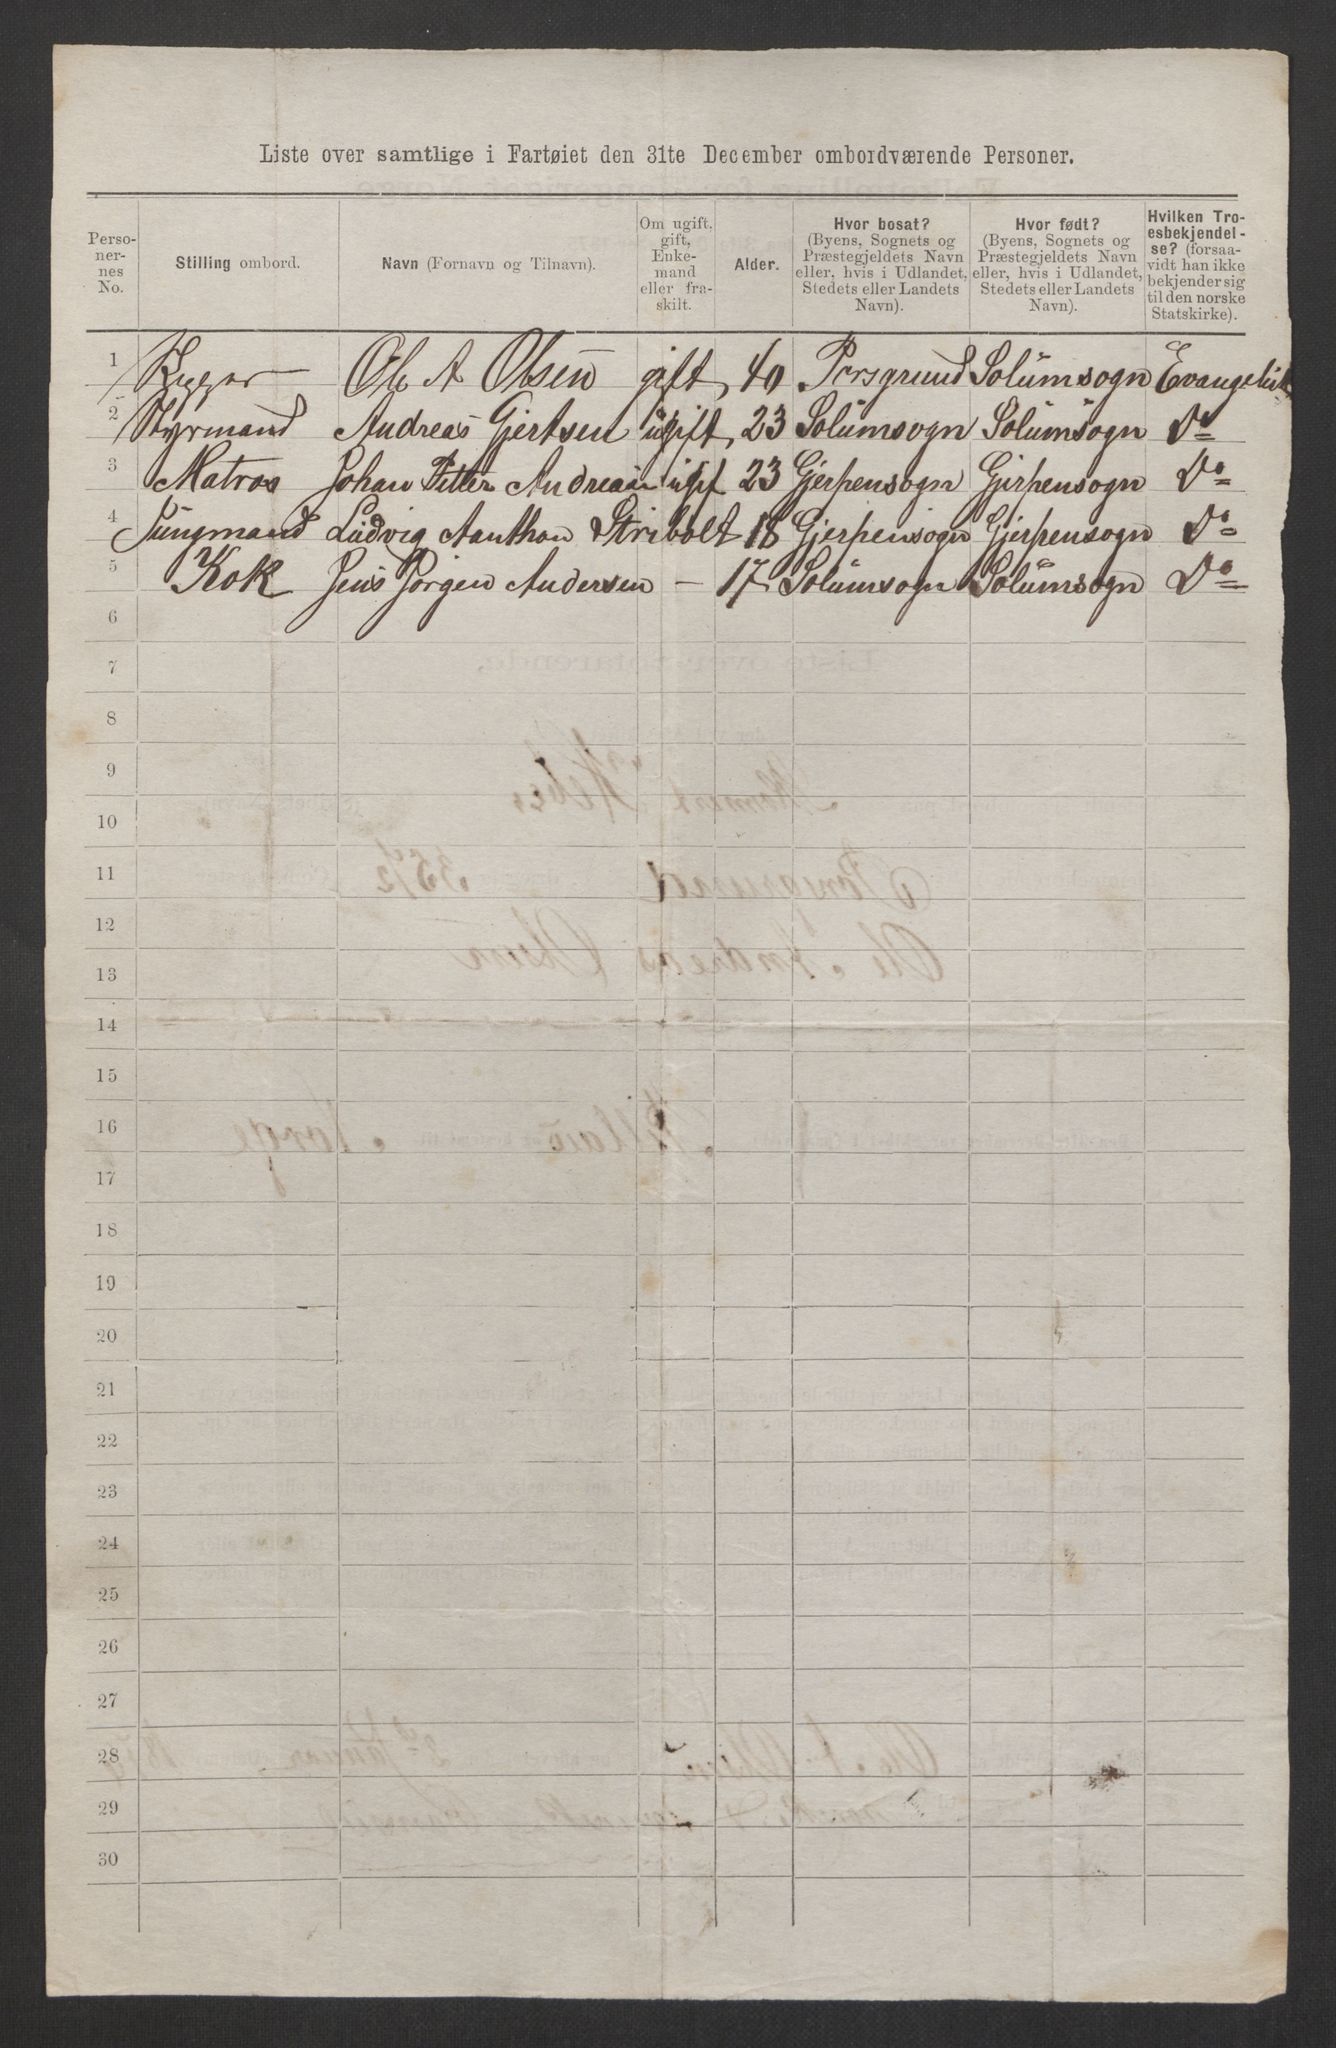 Liste over samtlige i Fartøiet den 31te December ombordværende Personer.
Perso-
ner-
nes
No.
Stilling ombord.
Navn (Fornavn og Tilnavn).
Om ugift,
gift,
Enke-
mand
eller fra-
skilt.
Alder.
Hvor bosat?
(Byens, Sognets og
Præstegjeldets Navn
eller, hvis i Udlandet,
Stedets eller Landets
Navn).
Hvor født?
(Byens, Sognets og
Præstegjeldets Navn
eller, hvis i Udlandet,
Stedets eller Landets
Navn).
Hvilken Tro-
esbekjendel-
se? (forsaa-
vidt han ikke
bekjender sig
til den norske
Statskirke).
1 Ole A Olsen gift 40 Porsgrund Solumsogn Evangelisk
2 Styrmand Andreas Gjertsen ugift 23 Solumsogn Solumsogn Do
3 Matros Johan Petter 23 Gjerpensogn Gjerpensogn Do
4 Jungmand Ludvig Aanthon Stribolt 18 Gjerpensogn Gjerpensogn Do
5 Kok Jens Jørgen Andersen — 17 Solumsogn Solumsogn Do
6
7
8
9
10
11
12
13
14
15
16
17
18
19
20
21
22
23
24
25
26
27
28
29
30